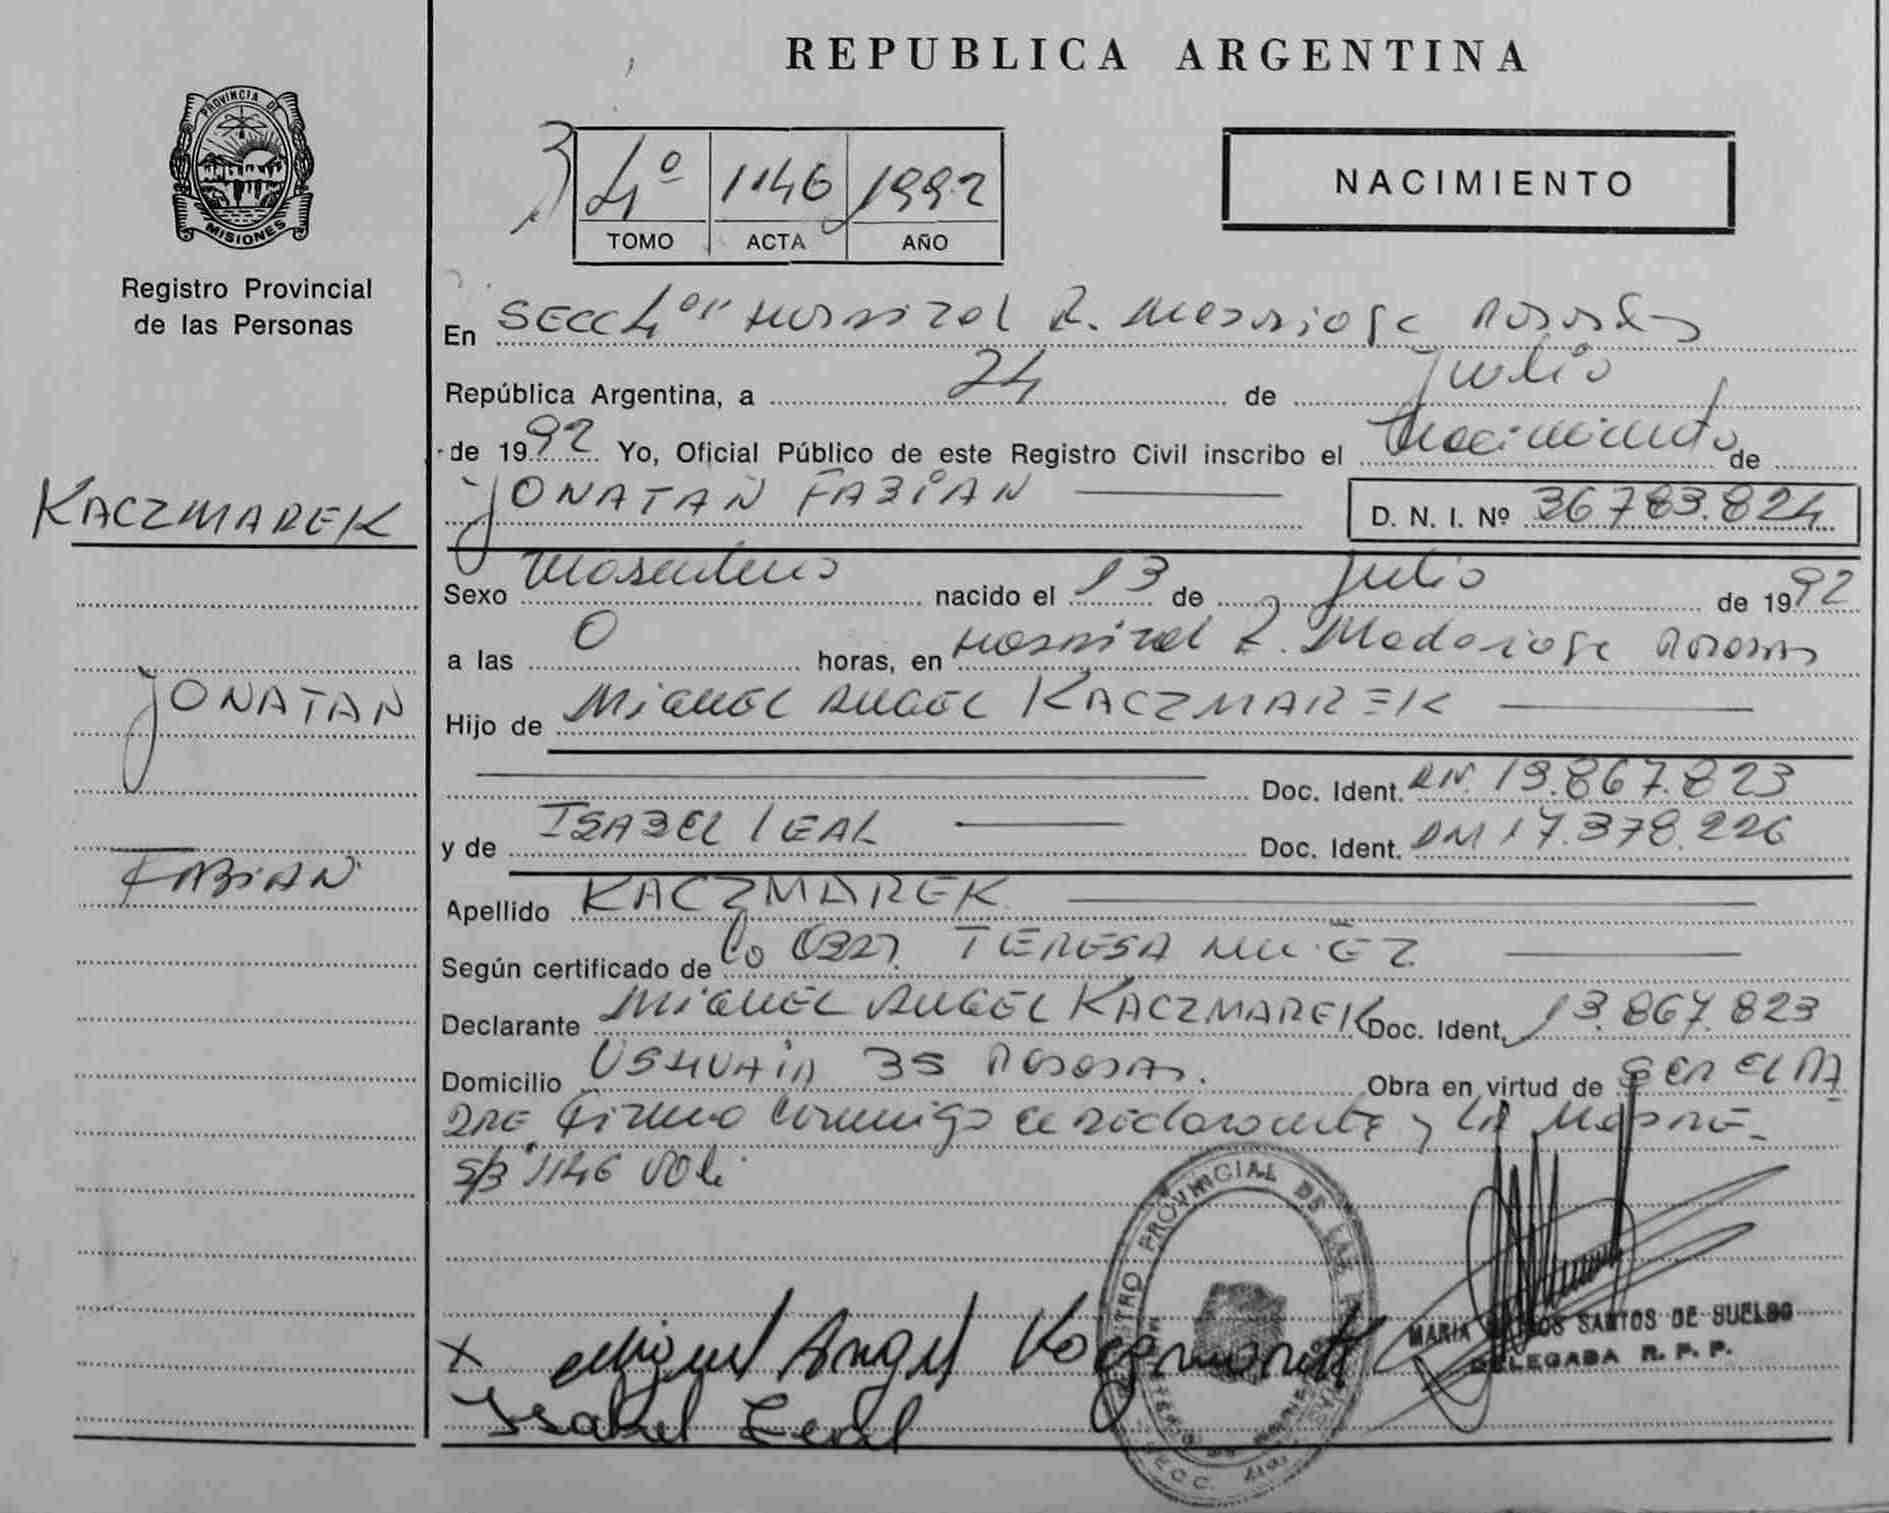 REPUBLICA ARGENTINA
PROVINCIA DE MISIONES
Registro Provincial
de las Personas
4º 1146 1992
TOMO ACTA AÑO
NACIMIENTO
En SECC 4º Hospital R. Madariaga Posadas
República Argentina, a 24 de Julio
de 1992 Yo, Oficial Público de este Registro Civil inscribo el Nacimiento de
JONATAN FABIAN D. N. I. Nº 36.783.824
KACZMAREK
Sexo Masculino nacido el 13 de Julio de 1992
a las 0 horas, en Hospital R. Madariaga Posadas
JONATAN
Hijo de MIGUEL ANGEL KACZMAREK
Doc. Ident. 13.867.823
y de ISABEL LEAL Doc. Ident. 17.378.226
FABIAN
Apellido KACZMAREK
Según certificado de TERESA
Declarante MIGUEL ANGEL KACZMAREK Doc. Ident. 13.867.823
Domicilio USHUAIA 35 POSADAS. Obra en virtud de SER EL PA
DRE Firma conmigo el declarante y LA MADRE-
S/B 1146
REGISTRO PROVINCIAL DE LAS PERSONAS
X Miguel Angel Kaczmarek
MARIA SANTOS DE SUELDO
DELEGADA R. P. P.
Isabel Leal